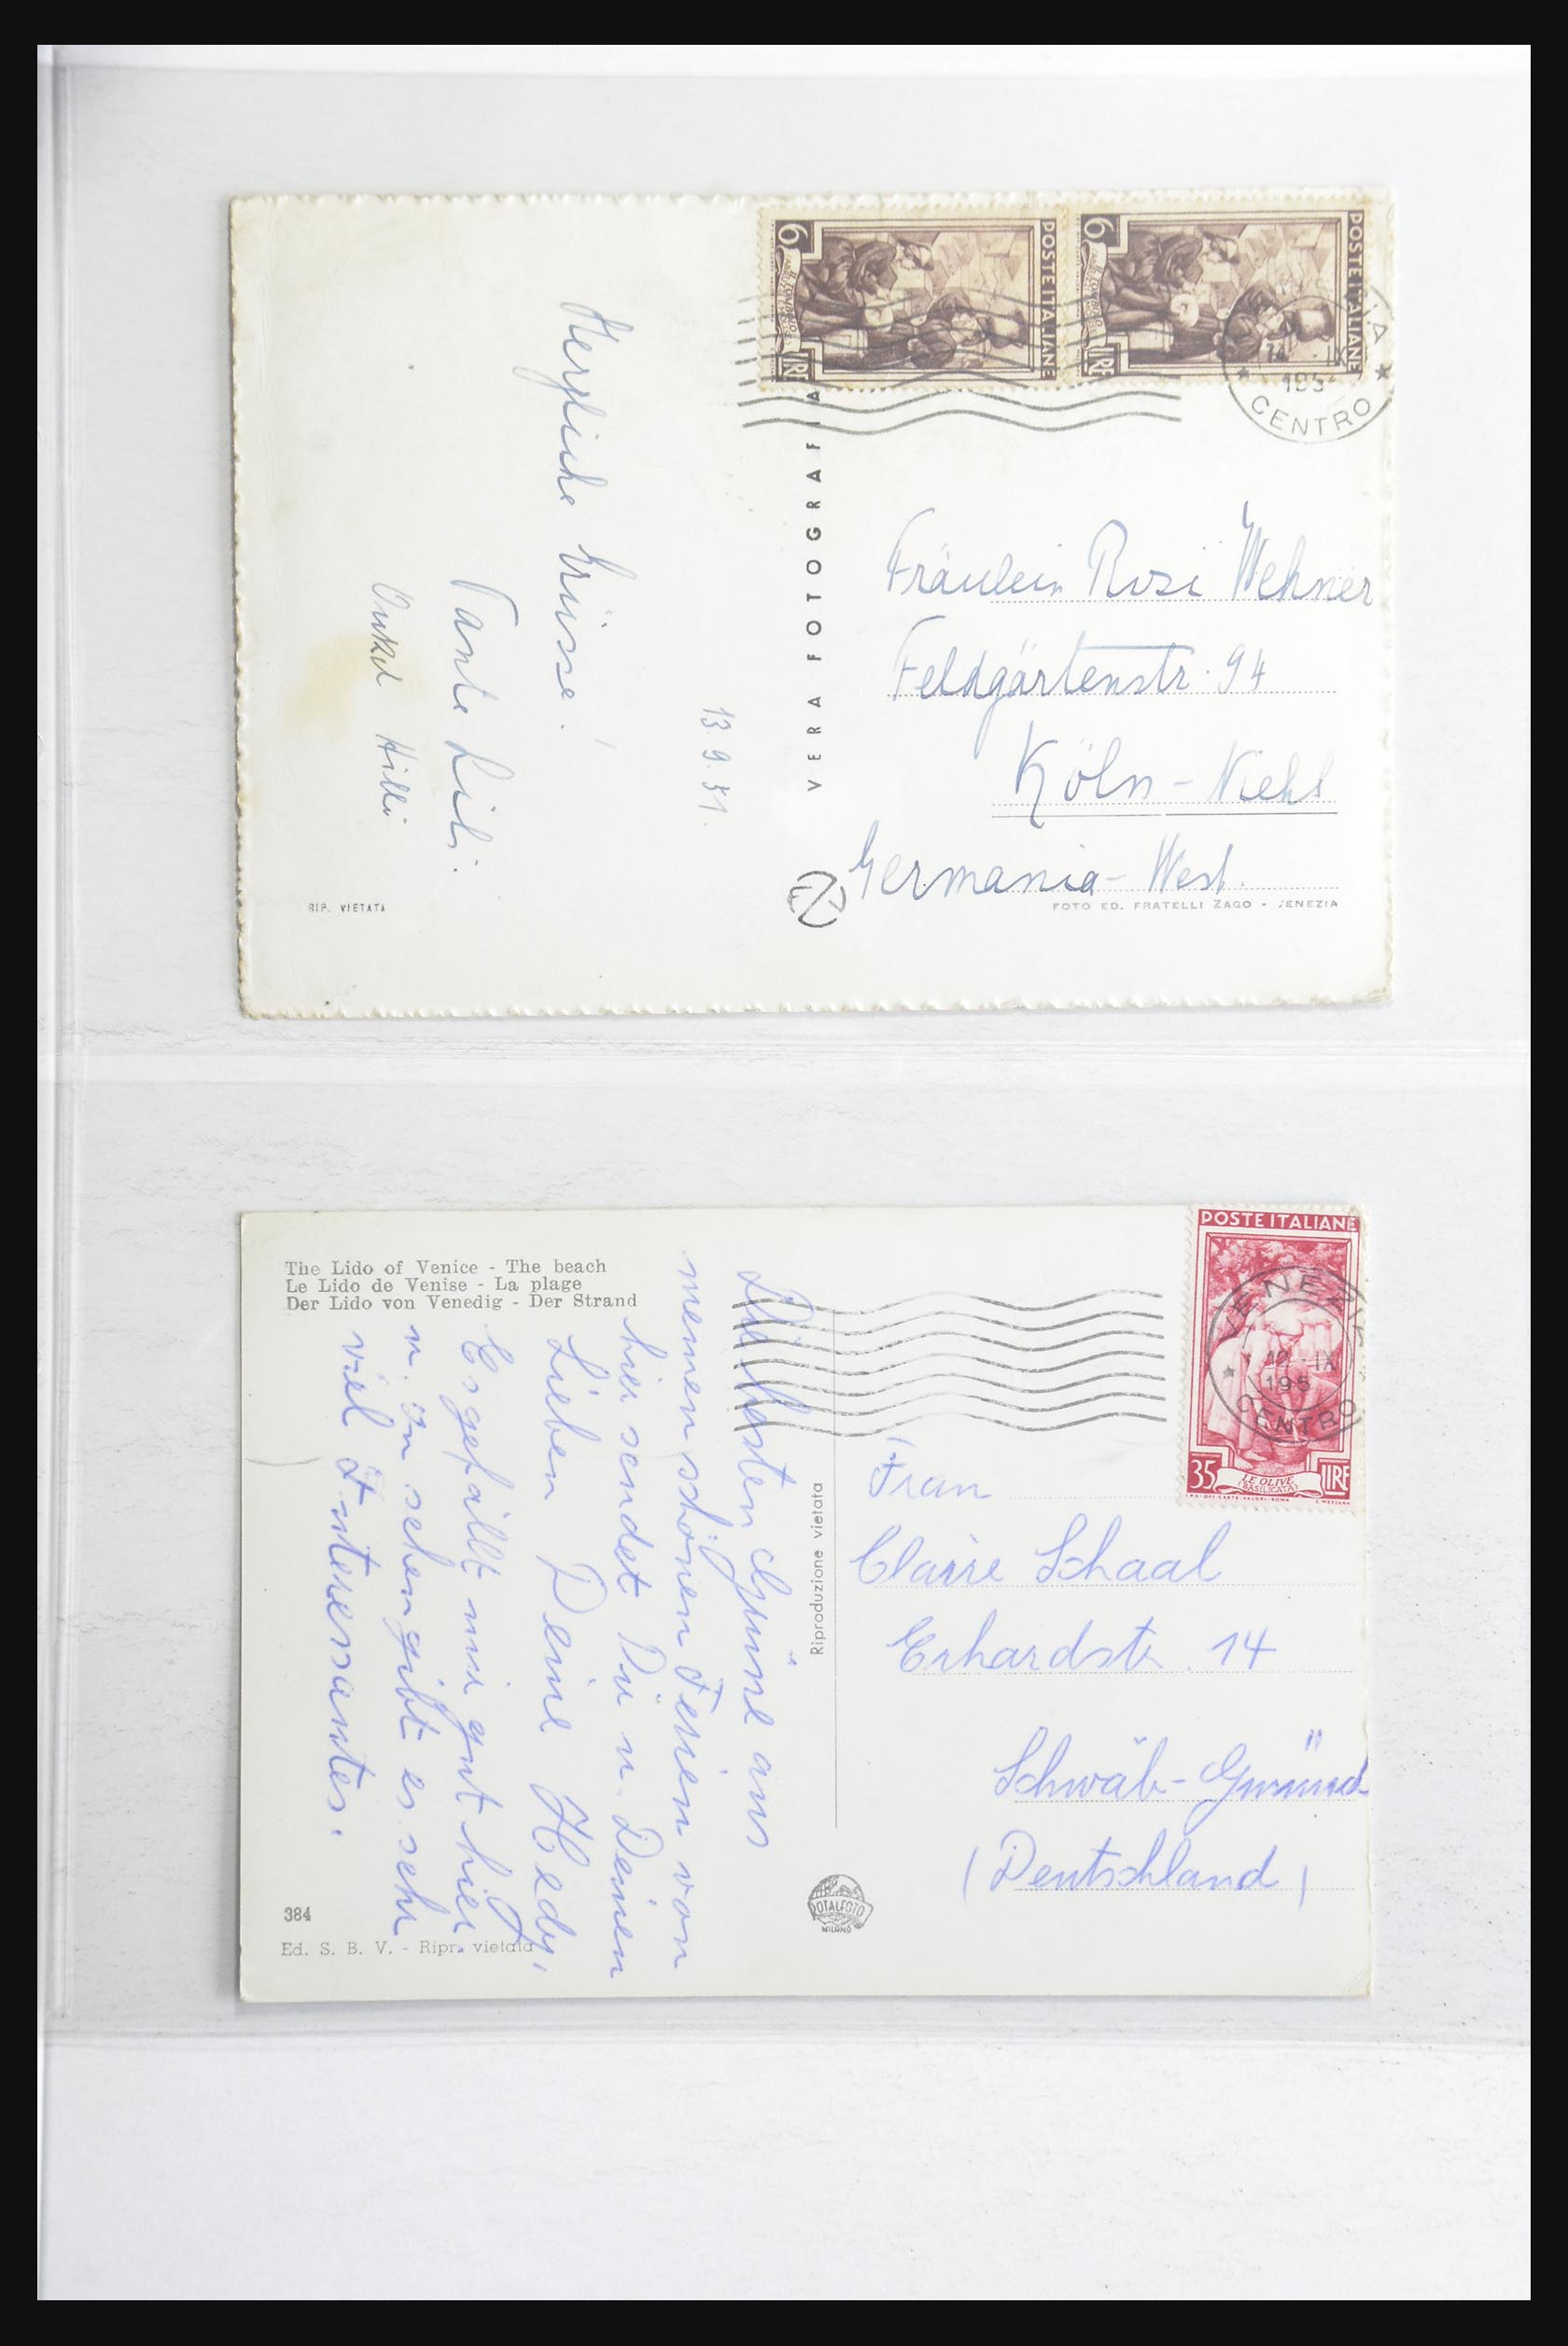 POSTE ITALIANE
6
LIRE
POSTE ITALIANE
6
LIRE
14 IX
195
CENTRO
13.9.51.
Herzliche Grüsse!
Tante Lili.
Onkel Hilli
VERA FOTOGRAFIA
Fräulein Rosi Wehner
Feldgärtenstr. 94
Köln-Niehl
Germania-West.
RIP. VIETATA
FOTO ED. FRATELLI ZAGO - VENEZIA
The Lido of Venice - The beach
Le Lido de Venise - La plage
Der Lido von Venedig - Der Strand
POSTE ITALIANE
35
LE OLIVE
(BASILICATA)
LIRE
VENEZIA
IX
195
CENTRO
Grüsse aus
meinen schönen Ferien von
hier sendet Dir u. Deinen
Lieben Deine Hedy.
Es gefällt mir gut hier
u. zu sehen gibt es sehr
viel Interessantes.
Riproduzione vietata
Frau
Claire Schaal
Erhardstr. 14
Schwäb-Gmünd
(Deutschland)
384
Ed. S. B. V. - Ripr. vietata
ROTALFOTO
MILANO